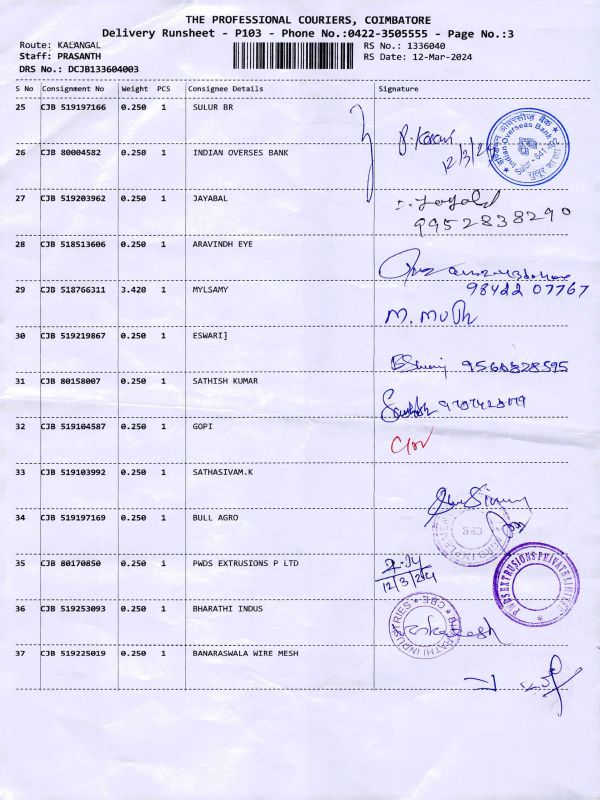 THE PROFESSIONAL COURIERS, COIMBATORE
Delivery Runsheet - P103 - Phone No.:0422-3505555 - Page No.:3
Route: KALANGAL RS No.: 1336040
Staff: PRASANTH RS Date: 12-Mar-2024
DRS No.: DCJB133604003
S No Consignment No Weight PCS Consignee Details Signature
25 CJB 519197166 0.250 1 SULUR BR
12/3/24
26 CJB 80004582 0.250 1 INDIAN OVERSES BANK
27 CJB 519203962 0.250 1 JAYABAL
9952838290
28 CJB 518513606 0.250 1 ARAVINDH EYE
29 CJB 518766311 3.420 1 MYLSAMY
98422 07767
M. Muth
30 CJB 519219867 0.250 1 ESWARI]
9560828595
31 CJB 80158007 0.250 1 SATHISH KUMAR
32 CJB 519104587 0.250 1 GOPI
33 CJB 519103992 0.250 1 SATHASIVAM.K
34 CJB 519197169 0.250 1 BULL AGRO
35 CJB 80170850 0.250 1 PWDS EXTRUSIONS P LTD
12/3/24
PWDS EXTRUSIONS PRIVATE LIMITED
36 CJB 519253093 0.250 1 BHARATHI INDUS
BHARATHI INDUSTRIES * CBE *
37 CJB 519225019 0.250 1 BANARASWALA WIRE MESH